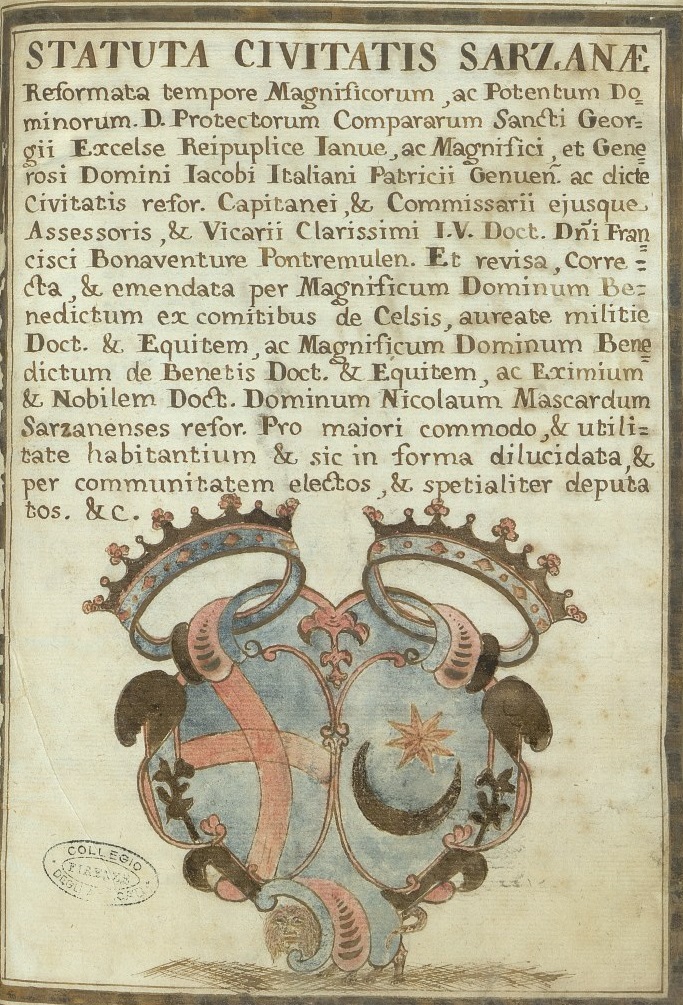 STATUTA CIVITATIS SARZANÆ
Reformata tempore Magnificorum, ac Potentum Do=
minorum. D. Protectorum Compararum Sancti Geor=
gii Excelse Reipuplice Ianue, ac Magnifici, et Gene=
rosi Domini Iacobi Italiani Patricii Genueñ. ac dicte
Civitatis refor. Capitanei, & Commissarii ejusque
Assessoris, & Vicarii Clarissimi I.V. Doct. Dñi Fran=
cisci Bonaventure Pontremulen. Et revisa, Corre=
cta, & emendata per Magnificum Dominum Be=
nedictum ex comitibus de Celsis, aureate militie
Doct. & Equitem, ac Magnificum Dominum Bene=
dictum de Benetis Doct. & Equitem, ac Eximium
& Nobilem Doct. Dominum Nicolaum Mascardum
Sarzanenses refor. Pro maiori commodo, & utili=
tate habitantium & sic in forma dilucidata, &
per communitatem electos, & spetialiter deputa
tos. & c.
COLLEGIO
FIRENZE